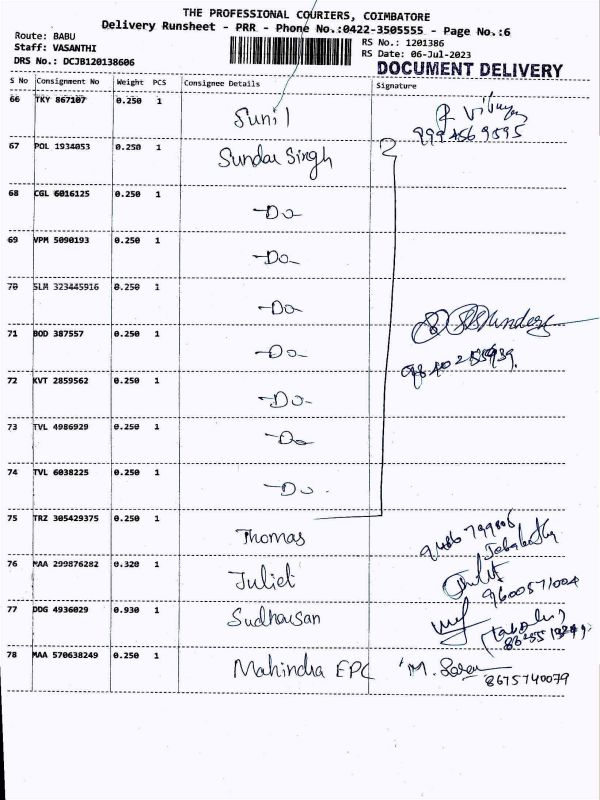 THE PROFESSIONAL COURIERS, COIMBATORE
Delivery Runsheet - PRR - Phone No.:0422-3505555 - Page No.:6
Route: BABU
Staff: VASANTHI
DRS No.: DCJB120138606
RS No.: 1201386
RS Date: 06-Jul-2023
DOCUMENT DELIVERY
S No Consignment No Weight PCS Consignee Details Signature
66 TKY 867107 0.250 1 Sunil
67 POL 1934053 0.250 1 Sundar Singh
68 CGL 6016125 0.250 1 -Do-
69 VPM 5090193 0.250 1 -Do-
70 SLM 323445916 0.250 1 -Do-
71 BOD 387557 0.250 1 -Do-
72 KVT 2859562 0.250 1 -Do-
73 TVL 4986929 0.250 1 -Do-
74 TVL 6038225 0.250 1 -Do-
75 TRZ 305429375 0.250 1 Thomas
76 MAA 299876282 0.320 1 Juliet 9600571004
77 DDG 4936029 0.930 1 Sudharsan
78 MAA 570638249 0.250 1 Mahindra EPC M. 8675740079